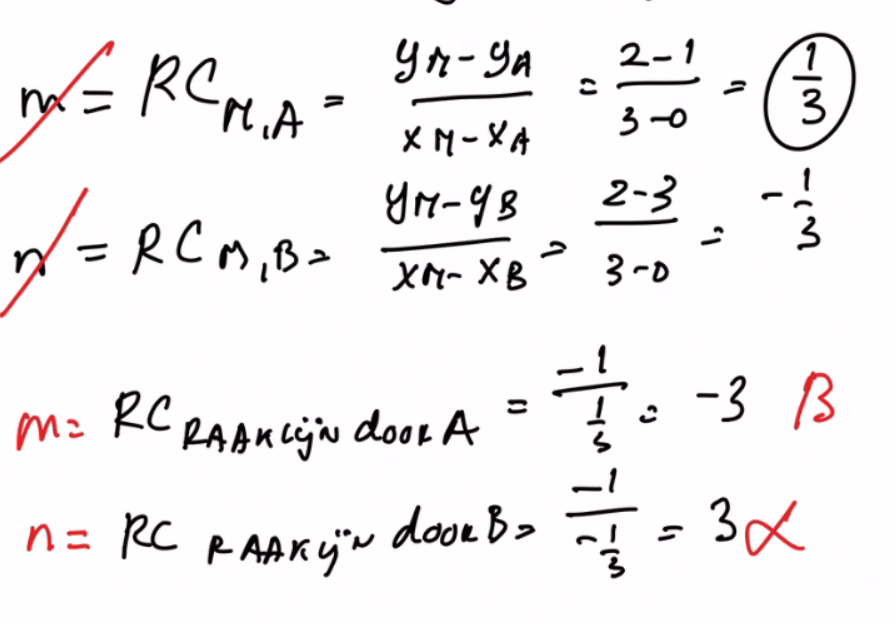 m = RC M,A = yM - yA / xM - xA = 2-1 / 3-0 = 1/3
n = RC M,B = yM - yB / xM - xB = 2-3 / 3-0 = -1/3
m = RC RAAKlijn door A = -1 / 1/3 = -3 β
n = RC RAAKlijn door B = -1 / -1/3 = 3 α